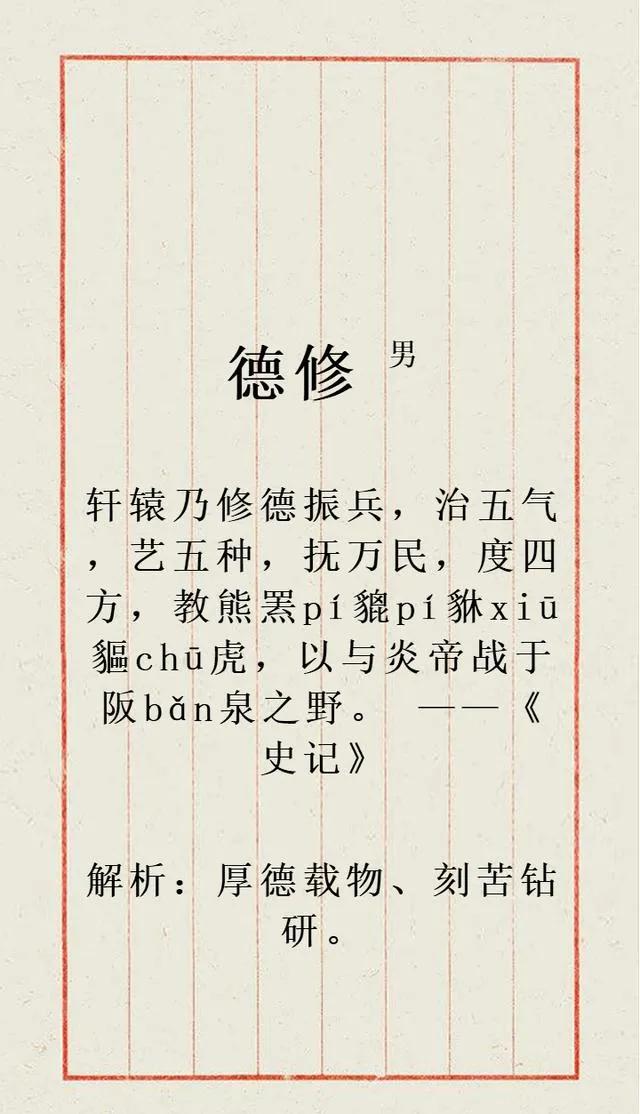 德修 男
轩辕乃修德振兵，治五气
，艺五种，抚万民，度四
方，教熊罴pí貔pí貅xiū
貙chū虎，以与炎帝战于
阪bǎn泉之野。 ——《
史记》
解析：厚德载物、刻苦钻
研。